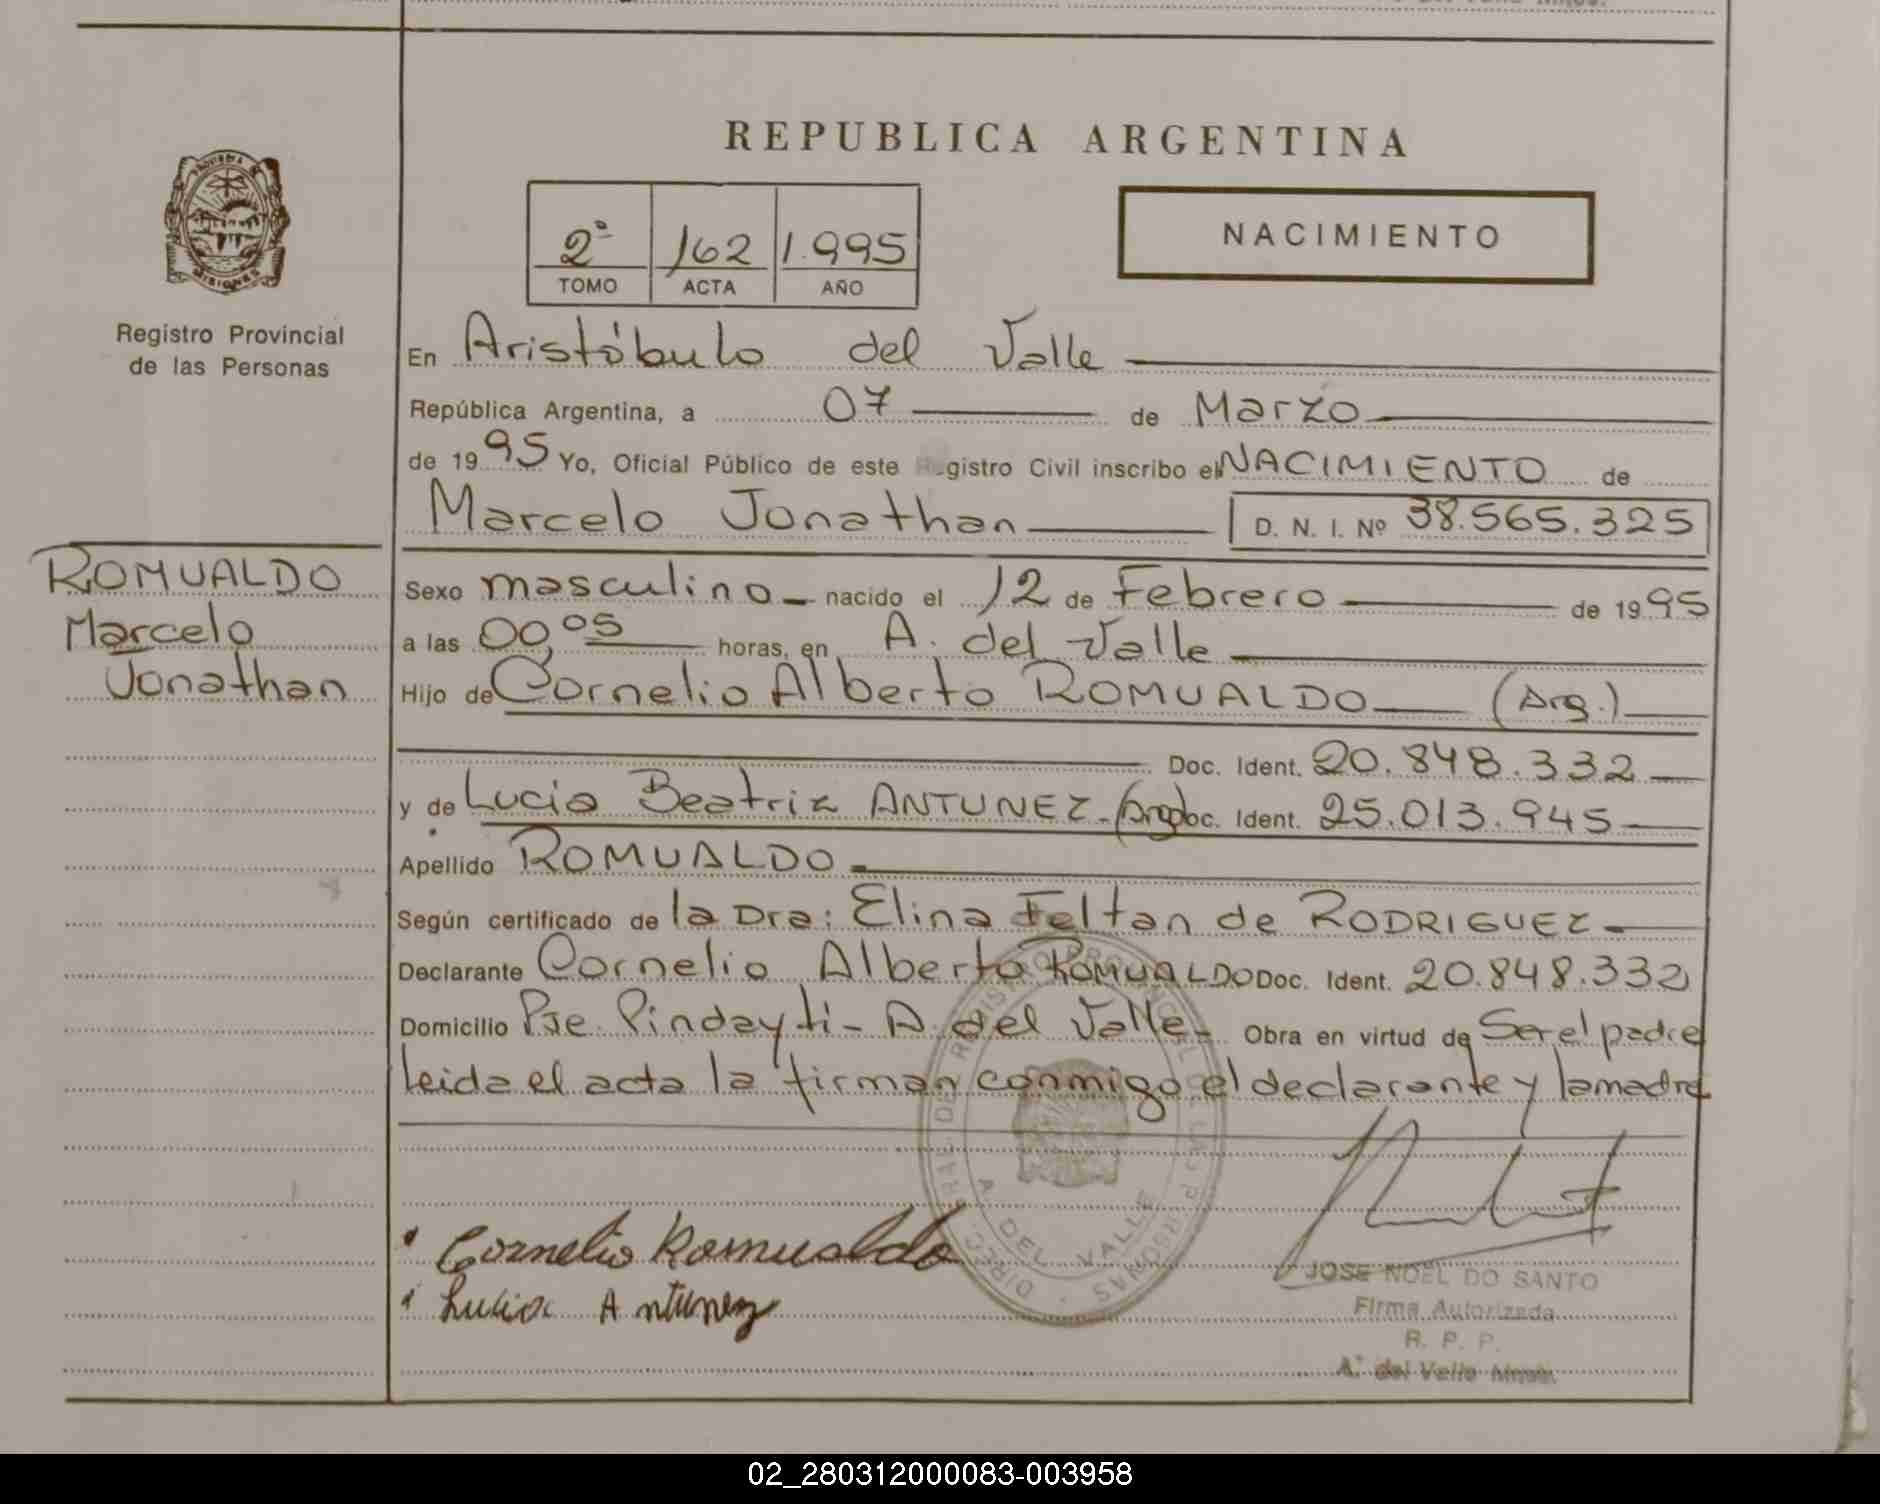 REPUBLICA ARGENTINA
2º 162 1.995
TOMO ACTA AÑO
NACIMIENTO
PROVINCIA
MISIONES
Registro Provincial
de las Personas
En Aristóbulo del Valle
República Argentina, a 07 de Marzo
de 1995 Yo, Oficial Público de este Registro Civil inscribo el NACIMIENTO de
Marcelo Jonathan D. N. I. Nº 38.565.325
ROMUALDO
Marcelo
Jonathan
Sexo masculino nacido el 12 de Febrero de 1995
a las 00,05 horas, en A. del Valle
Hijo de Cornelio Alberto ROMUALDO (Arg.)
Doc. Ident. 20.848.332
y de Lucia Beatriz ANTUNEZ. (Arg) Doc. Ident. 25.013.945
Apellido ROMUALDO
Según certificado de la Dra: Elina Feltan de RODRIGUEZ
Declarante Cornelio Alberto ROMUALDO Doc. Ident. 20.848.332
Domicilio Pje. Pindayti - A. del Valle - Obra en virtud de Ser el padre
leida el acta la firman conmigo el declarante y la madre
DIRECC. GRAL. DEL REGISTRO PROVINCIAL DE LAS PERSONAS
A. DEL VALLE
Cornelio Romualdo
Lucia Antunez
JOSE NOEL DO SANTO
Firma Autorizada
R. P. P.
A. del Valle Mnes.
02_280312000083-003958